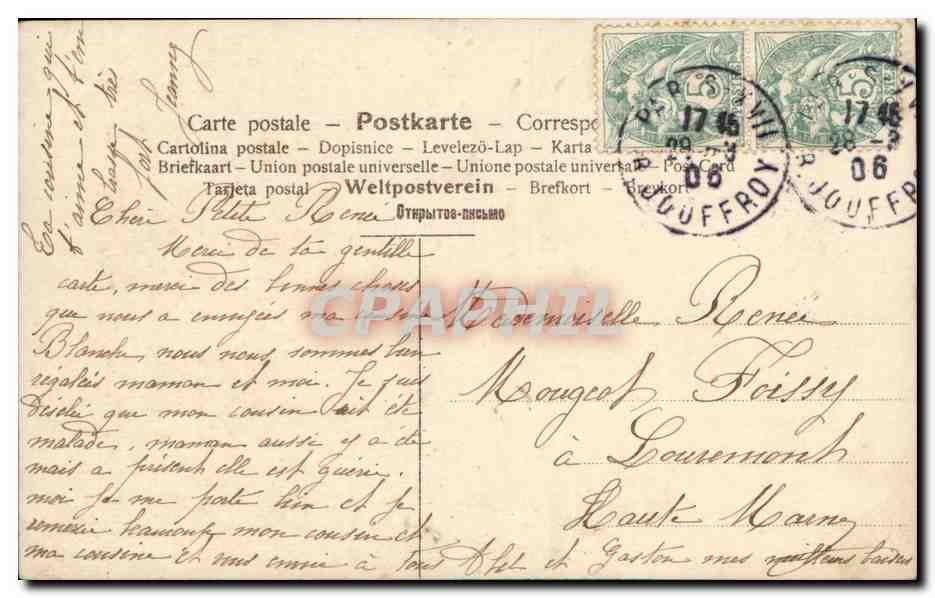 Carte postale – Postkarte – Correspo
Cartolina postale – Dopisnice – Levelezö-Lap – Karta
Briefkaart – Union postale universelle – Unione postale universale – Post Card
Tarjeta postal – Weltpostverein – Brefkort – Brevkort
Открытое-письмо
5c
PARIS XVII
17 45
28 -3
06
R. JOUFFROY
5c
17 45
28 -3
06
R. JOUFFROY
Chère Petite Renée
Merci de ta gentille
carte, merci des bonnes choses
que nous a envoyées ma cousine
Blanche, nous nous sommes bien
régalées maman et moi. Je suis
désolée que mon cousin ait été
malade, maman aussi y a été
mais a présent elle est guérie.
moi je me porte bien et je
remercie beaucoup mon cousin et
ma cousine et vous envoie à tous et Gaston mes meilleurs baisers
Ta cousine qui
t'aime et t'em
brasse très
fort
Jenny
Mademoiselle Renée
Mougeot Foissy
à Louvemont
Haute Marne
CPAPHIL